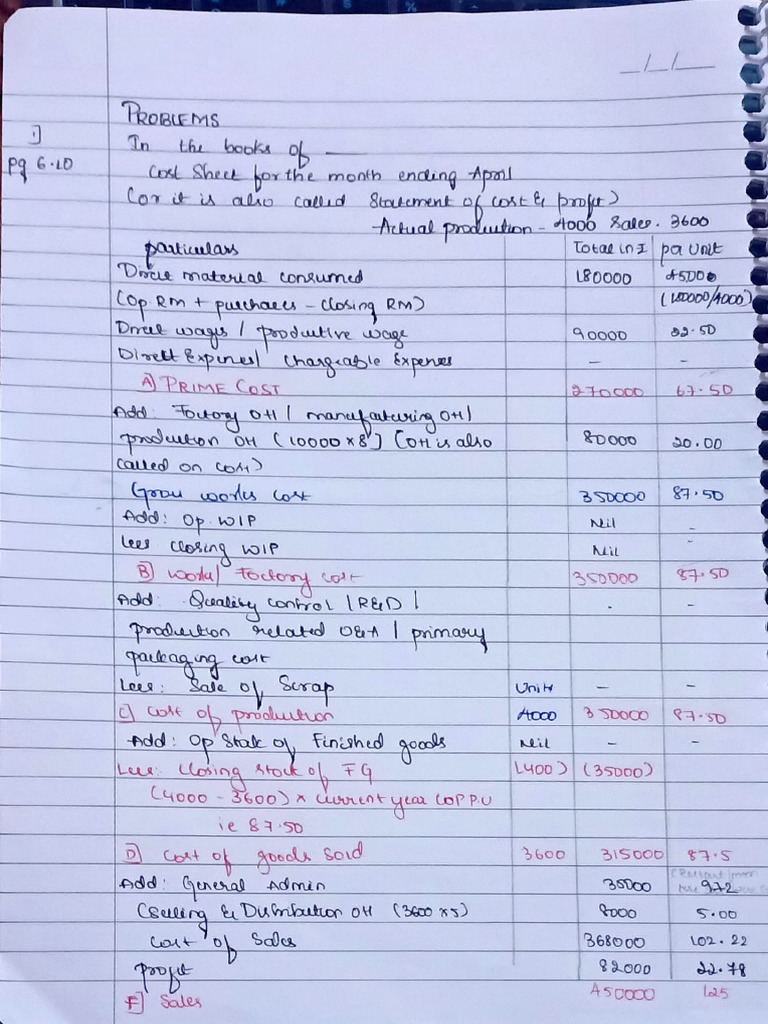 __/__/__
PROBLEMS
1]
In the books of ——
pg 6.10
Cost Sheet for the month ending April
(or it is also called Statement of cost & profit)
Actual production - 4000 Sales. 3600
particulars Total in ₹ per unit
Direct material consumed 180000 45.00
(op. RM + purchases - closing RM) (180000/4000)
Direct wages / productive wage 90000 22.50
Direct Expenses / chargeable Expenses — -
A) PRIME COST 270000 67.50
Add: Factory OH / manufacturing OH /
production OH (10000 x 8) (OH is also 80000 20.00
called on cost)
Gross works cost 350000 87.50
Add: Op. WIP Nil -
Less closing WIP Nil -
B) Works / Factory cost 350000 87.50
Add: Quality control / R&D / . -
production related O&A / primary
packaging cost
Less: Sale of Scrap Units — -
C) Cost of production 4000 350000 87.50
Add: Op Stock of Finished goods Nil — -
Less: Closing stock of FG (400) (35000)
(4000 - 3600) x current year COP P.U
ie 87.50
D) Cost of goods sold 3600 315000 87.5
Add: General Admin 35000 9.72
(Selling & Distribution OH (3600 x 5) 8000 5.00
Cost of Sales 368000 102.22
profit 82000 22.78
F] Sales 450000 125